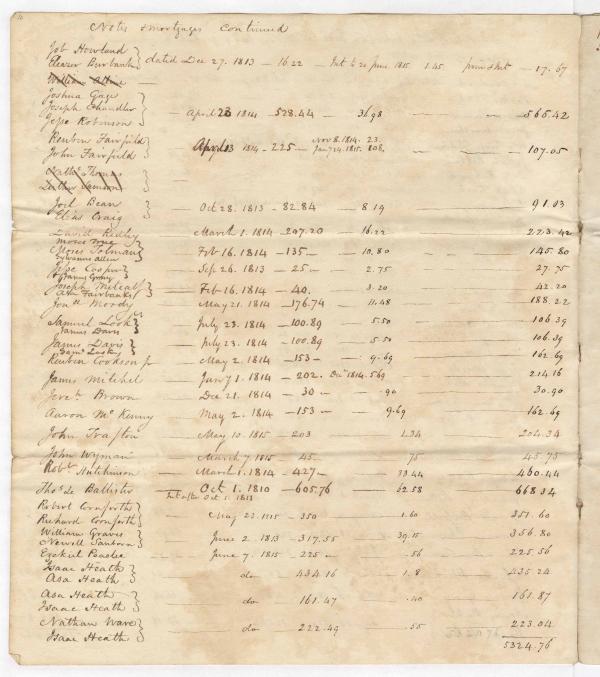 Notes & mortgages Continued
Job Howland }
Eleazer Burbank } dated Dec 27. 1813 — 16.22 — Int to 20 June 1815 1.45 prin & Int — 17.67
William Allen —
Joshua Gage }
Joseph Chandler } — April 23 1814 — 528.44 — 36.98 — 565.42
Jesse Robinson }
Reuben Fairfield } Nov 8. 1814. 23.
John Fairfield } April 13 1814 — 225 — Jany 24. 1815. 108. — 107.05
Nathl Thomas }
Luther Samson }
Joel Bean } — Oct 28. 1813 — 82.84 — 8.19 — 91.03
Elias Craig }
David Ridley — March 1. 1814 — 207.20 — 16.22 — 223.42
Moses True }
Moses Tolman } — Feb 16. 1814 — 135 — 10.80 — 145.80
Sylvanus Allen }
Jesse Cooper } — Sep 26. 1813 — 25 — 2.75 — 27.75
Joseph Metcalf } — Feb 16. 1814 — 40. — 3.20 — 42.20
Fairbanks }
Jona Moody — May 21. 1814 — 176.74 — 11.48 — 188.22
Samuel Look } — July 23. 1814 — 100.89 — 5.50 — 106.39
James Davis }
James Davis } — July 23. 1814 — 100.89 — 5.50 — 106.39
Saml Look }
Reuben Cookson Jr — May 2. 1814 — 153 — 9.69 — 162.69
James Mitchel — Jany 1. 1814 — 202. Dec 1814. 569 — 214.16
Jere Brown — Dec 21. 1814 — 30 — .90 — 30.90
Aaron Mc Kenny — May 2. 1814 — 153 — 9.69 — 162.69
John Trafton — May 10. 1815 — 203 — 1.34 — 204.34
John Wyman — March 7. 1815 — 45. — .75 — 45.75
Robt Hutchinson — March 1. 1814 — 427 — 33.44 — 460.44
Thos Le Ballister — Oct 1. 1810 — 605.76 — 62.58 — 668.34
Int after Oct 1. 1813
Robert Cornforth }
Richard Cornforth } — May 22. 1815 — 350 — 1.60 — 351.60
William Graves }
Newell Sanborn } — June 2. 1813 — 317.55 — 39.15 — 356.80
Ezekiel Peaslee — June 7. 1815 — 225 — .56 — 225.56
Isaac Heath }
Asa Heath } — do — 434.16 — 1.8 — 435.24
Asa Heath }
Isaac Heath } — do — 161.47 — .40 — 161.87
Nathan Ware }
Isaac Heath } — do — 222.49 — .55 — 223.04
5324.76